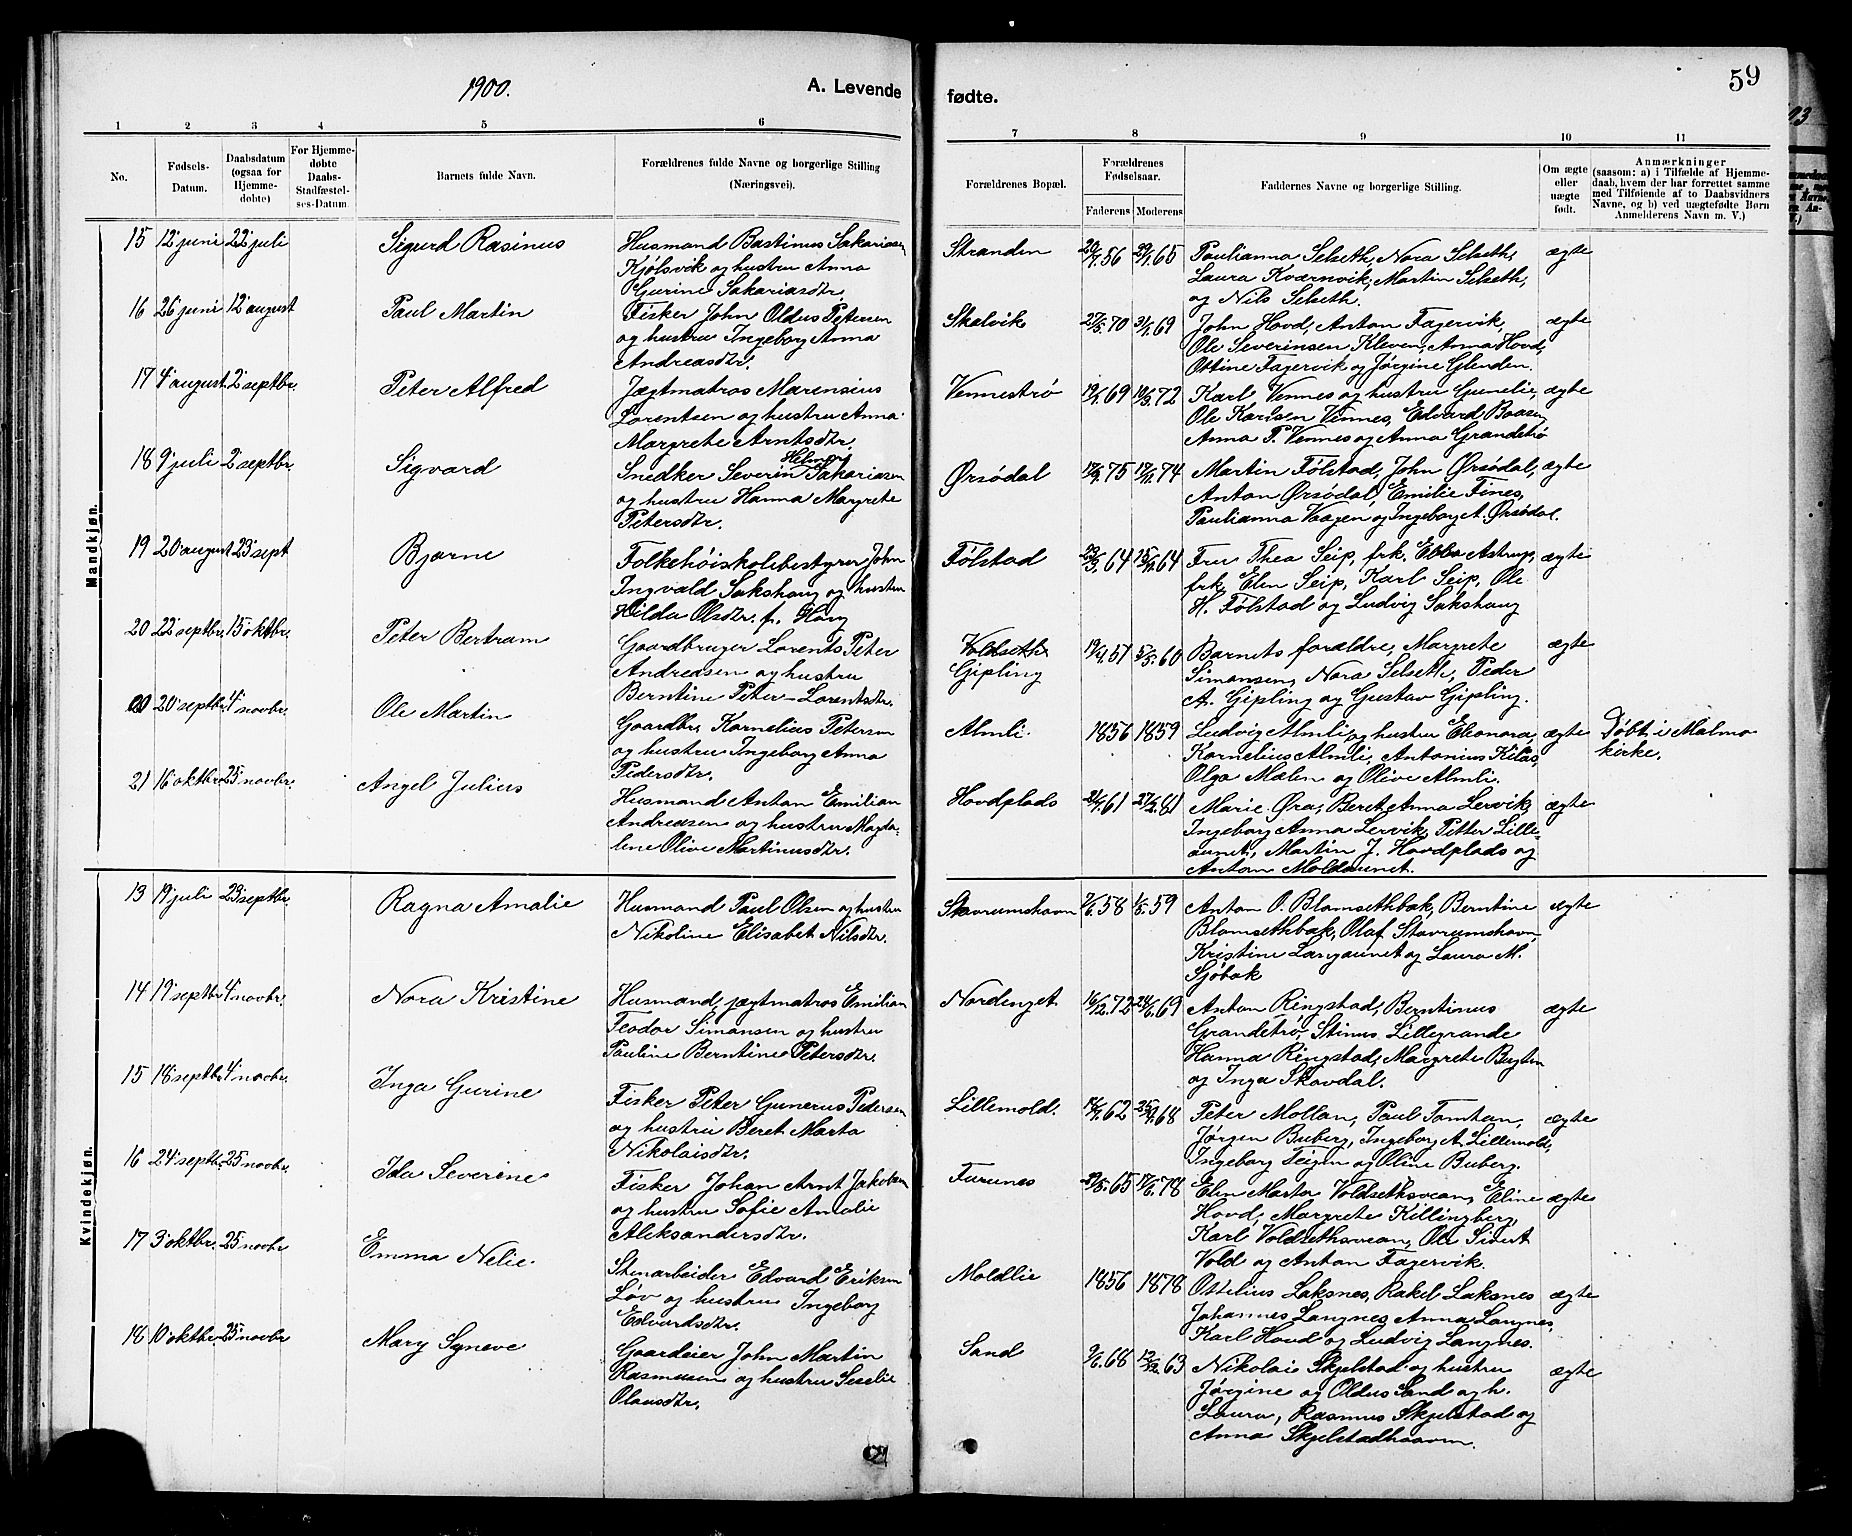 1900.
A. Levende
fødte.
59
1 2 3 4 5 6 7 8 9 10 11
No.
Fødsels-
Datum.
Daabsdatum
(ogsaa for
Hjemme-
døbte)
For Hjemme-
døbte
Daabs-
Stadfæstel-
ses-Datum
Barnets fulde Navn.
Forældrenes fulde Navne og borgerlige Stilling
(Næringsvei).
Forældrenes Bopæl.
Forældrenes
Fødselsaar.
Faderens Moderens
Faddernes Navne og borgerlige Stilling.
Om ægte
eller
uægte
født.
Anmærkninger
(saasom: a) i Tilfælde af Hjemme-
daab, hvem der har forrettet samme
med Tilføiende af to Daabsvidners
Navne, og b) ved uægtefødte Børn
Anmelderens Navn m. V.)
Mandkjøn.
15 12' juni 22' juli
Sigurd Rasinus
Husmand Bastinus Sakariasen
Kjølsvik og hustru Anna
Gurine Sakariasdtr.
Stranden
20/7.56 29/1.65
Paulianna Selseth, Nora Selseth,
Laura Kvernvik, Martin Selseth,
og Nils Selseth.
ægte
16 26' juni 12' august
Paul Martin
Fisker John Oldus Petersen
og hustru Ingeborg Anna
Andreasdtr.
Skalvik
27/5.70 31/1.69
John Hovd, Anton Fagervik,
Ole Severinsen Kleven, Anna Hovd,
Ottine Fagervik og Jørgine Glenden.
ægte
17 4' august 2' septbr.
Peter Alfred
Jægtmatros Marensius
Lorentsen og hustru Anna
Margrete Arntsdtr.
Vennestrø
19/1.69 10/3.72
Karl Vennes og hustru Gunelie,
Ole Karlsen Vennes, Edvard Boasen
Anna P. Vennes og Anna Grandetrø
ægte
18 9' juli 2' septbr.
Sigvard
Helmer
Snedker Severin Sakariasen
og hustru Hanna Margrete
Petersdtr.
Ørsødal
17/9.75 17/11.74
Martin Følstad, John Ørsødal,
Anton Ørsødal, Emilie Fines,
Paulianna Vaagen og Ingeborg A. Ørsødal.
ægte
19 20' august 23' sept
Bjarne
Folkehøiskolebestyrer John
Ingvald Sakshaug og hustru
Hilda Olsdtr. f. Haug
Følstad
23/3.64 15/12.64
Fru Thea Seip, frk. Ebba Astrup,
frk. Elen Seip, Karl Seip, Ole
H. Følstad og Ludvig Sakshaug
ægte
20 22' septbr. 15' oktbr.
Peter Bertram
Gaardbruger Lorents Peter
Andreasen og hustru
Berntine Peter-Lorentsdtr.
Voldseth
Gipling
19/4.57 5/5.60
Barnets forældre, Margrete
Simonsen, Nora Selseth, Peder
A. Gipling og Gustav Gipling.
ægte
20 20' septbr. 4' novbr.
Ole Martin
Gaardbr. Kornelius Petersen
og hustru Ingeborg Anna
Pedersdtr.
Almli
1856 1859
Ludvig Almli og hustru Eleonora,
Kornelius Almli, Antonius Kilaas,
Olga Mælen og Olive Almli.
ægte
Døbt i Malmo
kirke.
21 16' oktbr. 25' novbr.
Angel Julius
Husmand Anton Emilian
Andreasen og hustru Magda-
lene Olive Martinusdtr.
Hovdplads
21/7.61 27/2.81
Marie Øra, Beret Anna Lervik,
Ingeborg Anna Lervik, Petter Lille-
aunet, Martin J. Hovdplads og
Anton Moldaunet.
ægte
Kvindekjøn.
13 19' juli 23' septbr.
Ragna Amalie
Husmand Paul Olsen og hustru
Nikoline Elisabet Nilsdtr.
Stavrumshavn
7/6.58 1/8.59
Anton O. Blomsethbak, Berntine
Blomsethbak, Olaf Stavrumshavn,
Kristine Langaunet og Laura M.
Sjøbak
ægte
14 19' septbr 4' novbr.
Nora Kristine
Husmand, jægtmatros Emilian
Teodor Simonsen og hustru
Pauline Berntine Petersdtr.
Nordenget
16/12.72 24/6.69
Anton Ringstad, Berntinus
Grandetrø, Stinus Lillegrande
Hanna Ringstad, Margrete Bugten
og Inga Skavdal.
ægte
15 18' septbr 4' novbr.
Inga Gurine
Fisker Peter Gunerus Pedersen
og hustru Beret Marta
Nikolaisdtr.
Lillemold.
14/7.62 25/9.68
Peter Mollan, Paul Tamtan,
Jørgen Buberg, Ingeborg A. Lillemold,
Ingeborg Teigen og Oline Buberg.
ægte
16 24' septbr. 25' novbr.
Ida Severine
Fisker Johan Arnt Jakobsen
og hustru Sofie Amalie
Aleksandersdtr.
Furunes
29/5.65 17/6.78
Elen Marta Voldsethsvean, Eline
Hovd, Margrete Killingberg,
Karl Voldsethsvean, Ole Sivert
Vold og Anton Fagervik.
ægte
17 3' oktbr. 25' novbr
Emma Nelie.
Stenarbeider Edvard Eriksen
Løv og hustru Ingeborg
Edvardsdtr.
Moldlie
1856 1878
Ottelius Laksnes, Rakel Laksnes
Johannes Langnes, Anna Langnes,
Karl Hovd og Ludvig Langnes.
ægte
18 10' oktbr. 25' novbr
Mary Syneve
Gaardeier John Martin
Rasmussen og hustru Seselie
Olausdtr.
Sand
9/6.68 12/12.63
Nikolai Skjelstad og hustru
Jørgine og Oldus Sand og h.
Laura, Rasmus Skjelstad og
Anna Skjelstadhaavn.
ægte